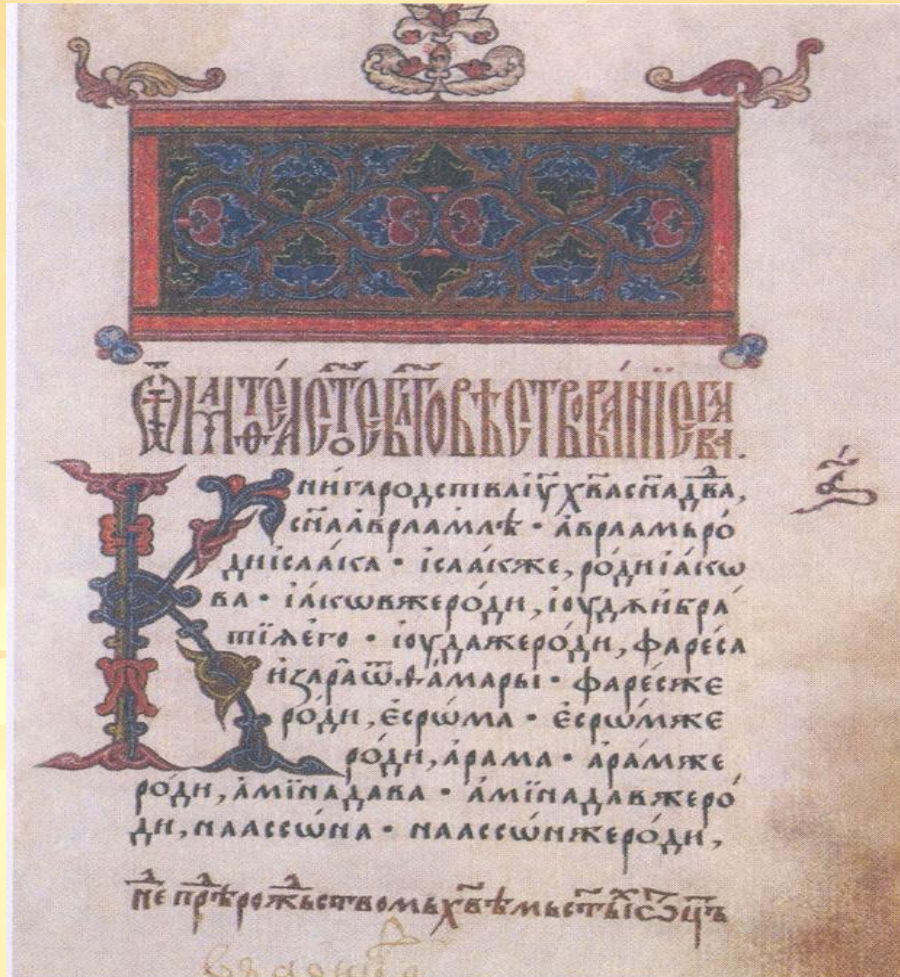 Ѿ МАТѲЕА СТОЕ БЛГОВѢСТВОВАНІЕ ГЛАВА.
Книга родства іу҃ хв҃а сн҃а дв҃да,
сн҃а авраамлѣ · а́враамь ро́
ди ісаа́ка · ісаа́кже, ро́ди іа́кѡ
ва · іа́кѡвжеро́ди, іоуд꙽ѫ и҆бра́
тїѧ его̀ · іоу́дажеро́ди, фаре́са
и҆за́ра ѿ ѳама́ры · фаре́сже
ро́ди, есрѡ́ма · есрѡ́мже
ро́ди, ара́ма · ара́мже
ро́ди, амїнада́ва · амїнада́вжеро́
ди, наассѡ́на · наассѡ́нжеро́ди,
не прѣ рожьствомь хв҃ѣмь ст҃ы